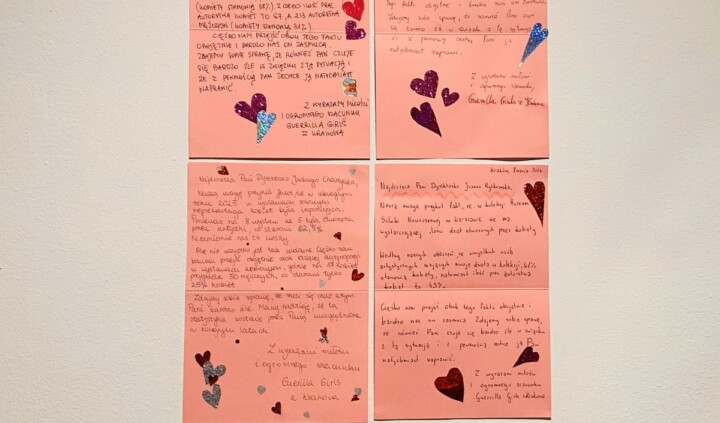 (KOBIETY STANOWIĄ 38%) Z CZEGO ILOŚĆ PRAC
AUTORSTWA KOBIET TO 67, A 213 AUTORSTWA
MĘŻCZYZN (KOBIETY STANOWIĄ 31%).
CIĘŻKO NAM PRZEJŚĆ OBOK TEGO FAKTU
OBOJĘTNIE I BARDZO NAS ON ZASMUCA.
ZDAJEMY SOBIE SPRAWĘ, ŻE RÓWNIEŻ PAN CZUJE
SIĘ BARDZO ŹLE W ZWIĄZKU Z TĄ SYTUACJĄ I
ŻE Z PEWNOŚCIĄ PAN ZECHCE JĄ NATYCHMIAST
NAPRAWIĆ.
Z WYRAZAMI MIŁOŚCI
I OGROMNEGO SZACUNKU
GUERRILLA GIRLS
Z KRAKOWA
tego faktu obojętnie i bardzo nas on zasmuca.
Zdajemy sobie sprawę, że również Pan czuje
się bardzo źle w związku z tą sytuacją
i z pewnością zechce Pan ją
natychmiast naprawić.
Z wyrazami miłości
i ogromnego szacunku
Guerrilla Girls z Krakowa
Najdroższa Pani Dyrektorko Jadwigo Charzyńska,
Naszą uwagę przykuł fakt, że w ubiegłym
roku 2023 w wystawach
reprezentacja kobiet była imponująca.
Ponieważ na 8 wystaw aż 5 była stworzona
przez artystki, co stanowi 62,5%
Niezmiernie nas to cieszy
Ale nie wszystko jest tak różowe. Ciężko nam
bowiem przejść obojętnie obok
w wystawach zbiorowych, gdzie na 10 kobiet
przypadło 30 mężczyzn, co stanowi tylko
25% kobiet.
Zdajemy sobie sprawę, że musi się czuć z tym
Pani bardzo źle. Mamy nadzieję, że ta
statystyka zostanie przez Panią uwzględniona
w kolejnych latach.
Z wyrazami miłości
i ogromnego szacunku
Guerilla Girls
z Krakowa
Kraków
Najdroższa Pani Dyrektorko Joanno Mytkowska,
Naszą uwagę przykuł fakt, że w kolekcji Muzeum
Sztuki Nowoczesnej w Warszawie nie ma
wystarczającej ilości dzieł stworzonych przez kobiety.
Według naszych obliczeń ze wszystkich osób
artystycznych mających swoje dzieła w kolekcji, 41%
stanowią kobiety, natomiast ilość prac autorstwa
kobiet to 43%.
Ciężko nam przejść obok tego faktu obojętnie i
bardzo nas on zasmuca. Zdajemy sobie sprawę,
że również Pani czuje się bardzo źle w związku
z tą sytuacją i z pewnością zechce ją Pani
natychmiast naprawić.
Z wyrazami miłości
i ogromnego szacunku
Guerrilla Girls z Krakowa